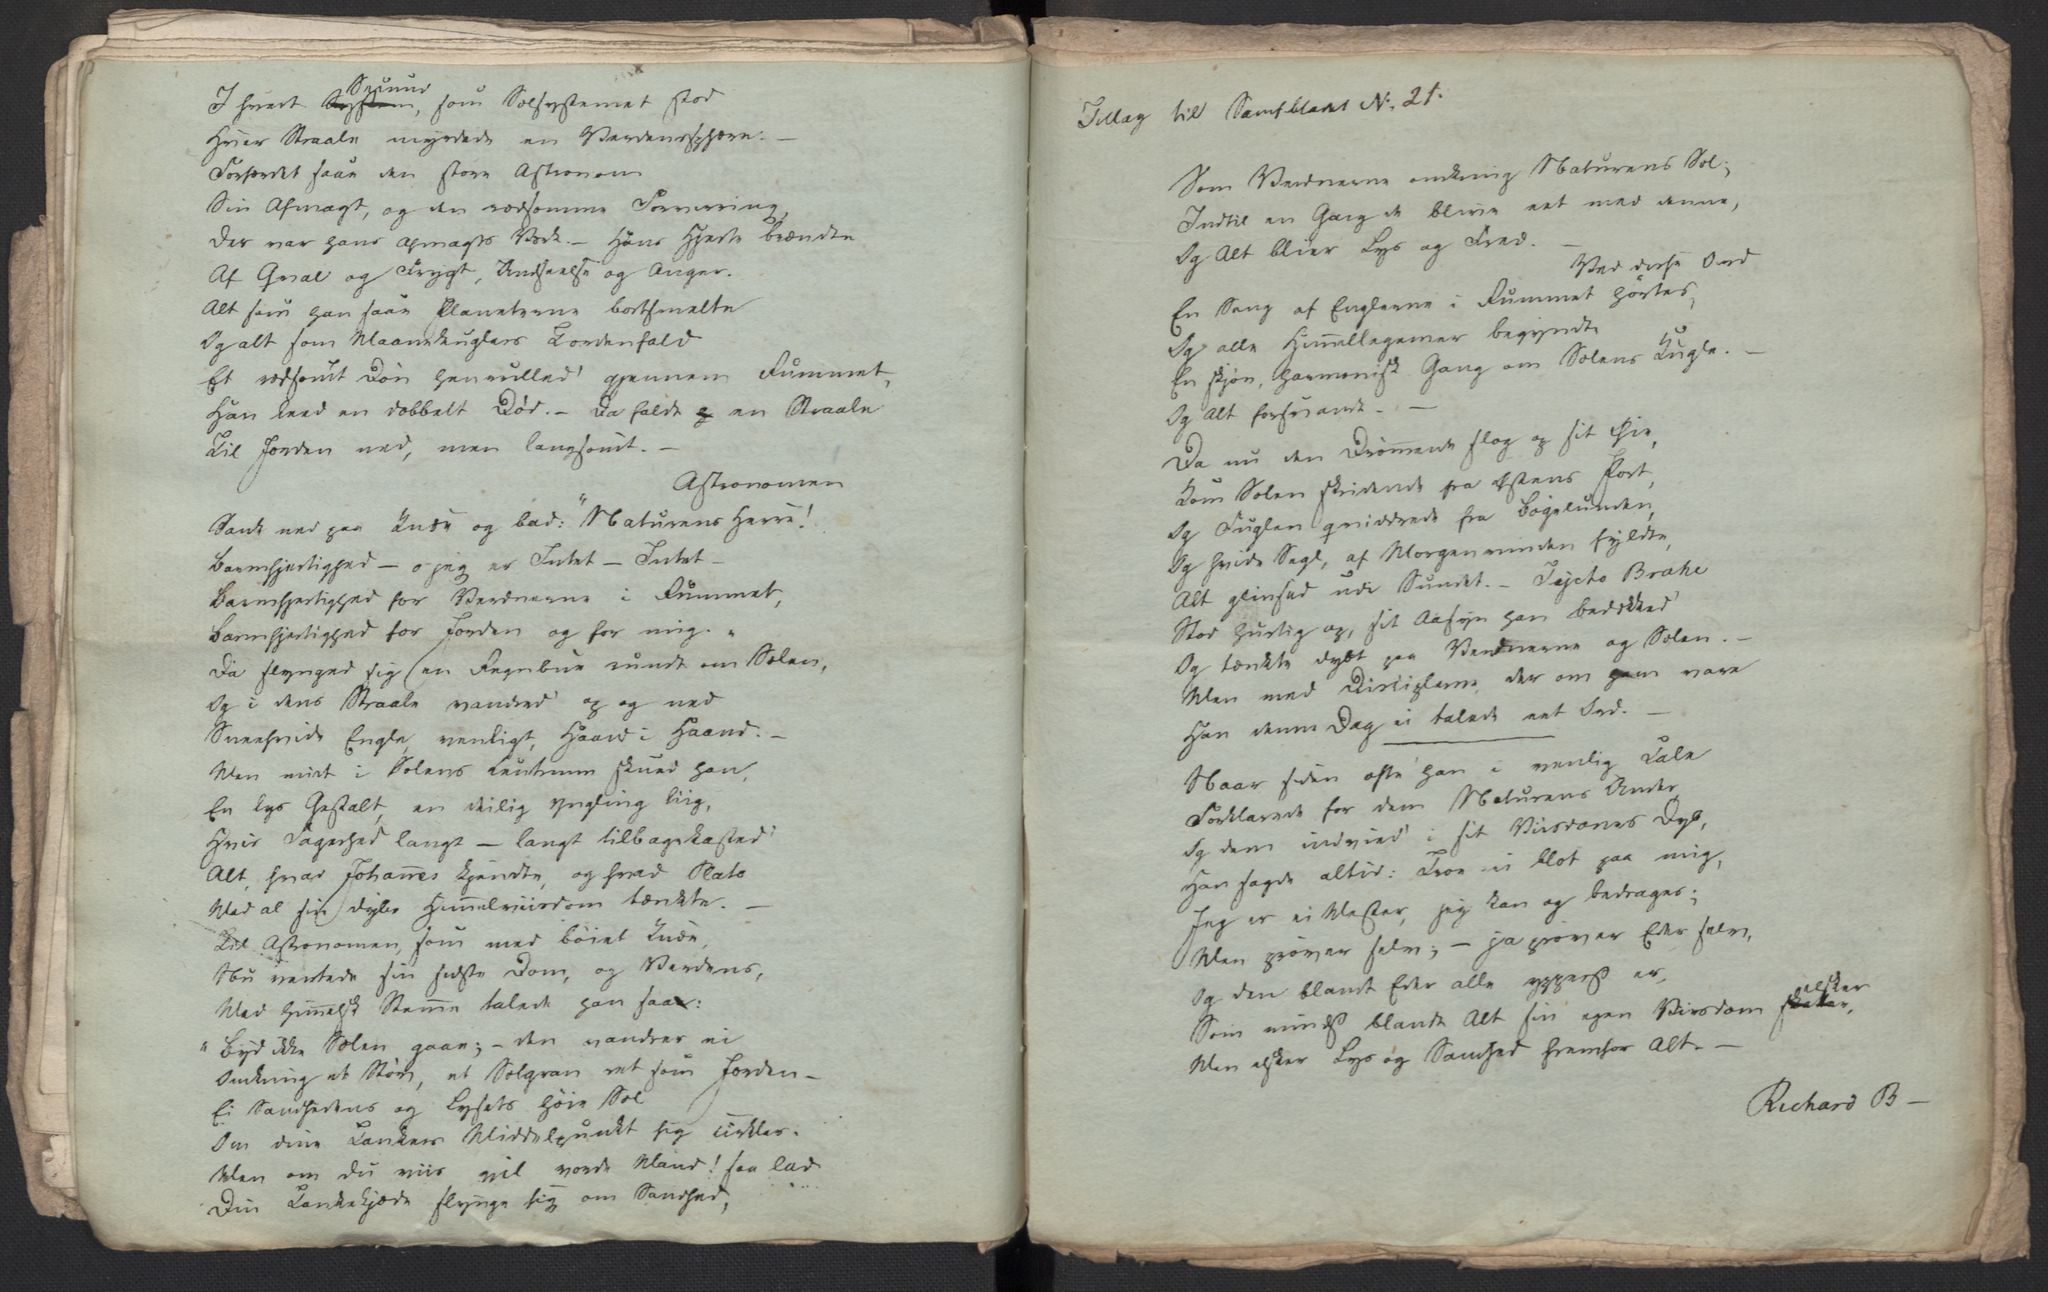 I hvert Secund, som Solsystemet stod
Hver Straale myrdede en Verdenssphære. —
Forfærdet saae den store Astronom
Sin Afmagt, og den rædsomme Forvirring,
Der var hans Afmagts Værk. — Hans Hjerte brændte
Af Qval og Frygt, Undseelse og Anger.
Alt som han saae Planeterne bortsmelte
Og alt som Maanekuglers Tordenfald
Et rædsomt Døn henrulled' gjennem Rummet,
Han leed en dobbelt Død. — Da faldt en Straale
Til Jorden ned, men langsomt. —
Astronomen
Sank ned paa Knæe og bad: "Naturens Herre!
Barmhjertighed — o jeg er Intet — Intet —
Barmhjertighed for Verdnerne i Rummet,
Barmhjertighed for Jorden og for mig. "
Da slynged sig en Regnbue rundt om Solen,
Og i dens Straale vandred' op og ned
Sneehvide Engle, venligt, Haand i Haand. —
Men midt i Solens Centrum skued han,
En lys Gestalt, en deilig Yngling liig,
Hvis Fagerhed langt — langt tilbagekasted'
Alt, hvad Johannes kjendte, og hvad Plato
Med al sin dybe Himmelviisdom tænkte. —
Til Astronomen, som med bøiet Knæe,
Nu ventede sin sidste Dom, og Verdens,
Med himmelsk Stemme talede han saa:
"Byd ikke Solen gaae; — den vandrer ei
Omkring et Støv, et Solgran ret som Jorden —
Ei Sandhedens og Lysets høie Sol
Om dine Tankers Middelpunkt sig cirkler.
Men om du viis vil vorde Mand! saa lad
Din Tankekjæde slynge sig om Sandhed,
Tillæg til Samfbladet No. 21.
Som Verdnerne omkring Naturens Sol;
Indtil en Gang de blive eet med denne,
Og Alt bliver Lys og Fred. —
Ved disse Ord
En Sang af Englerne i Rummet hørtes,
Og alle Himmellegemer begyndte
En skjøn, harmonisk Gang om Solens Kugle. —
Og Alt forsvandt. —
Da nu den Drømmende slog op sit Øie,
Kom Solen skridende fra Østens Port,
Og Fuglen qviddrede fra Bøgelunden,
Og hvide Segl, af Morgenvinden fyldte,
Alt glindsed udi Sundet. — Tycho Brahe
Stod hurtig op, sit Aasyn han bedækked'
Og tænkte dybt paa Verdnerne og Solen. —
Men med Disciplerne, der om ham vare
Han denne Dag ei talede eet Ord. —
Naar siden ofte han i venlig Tale
Forklarede for dem Naturens Under
Og dem indvied' i sit Viisdoms Dyb,
Han sagde altid: Troe ei blot paa mig,
Jeg er ei Mester, jeg kan og bedrages;
Men prøver selv; — ja prøver Eder selv,
Og den blandt Eder alle ypperst er,
Som mindst blandt Alt sin egen Viisdom elsker,
Men elsker Lys og Sandhed fremfor Alt. —
Richard B —